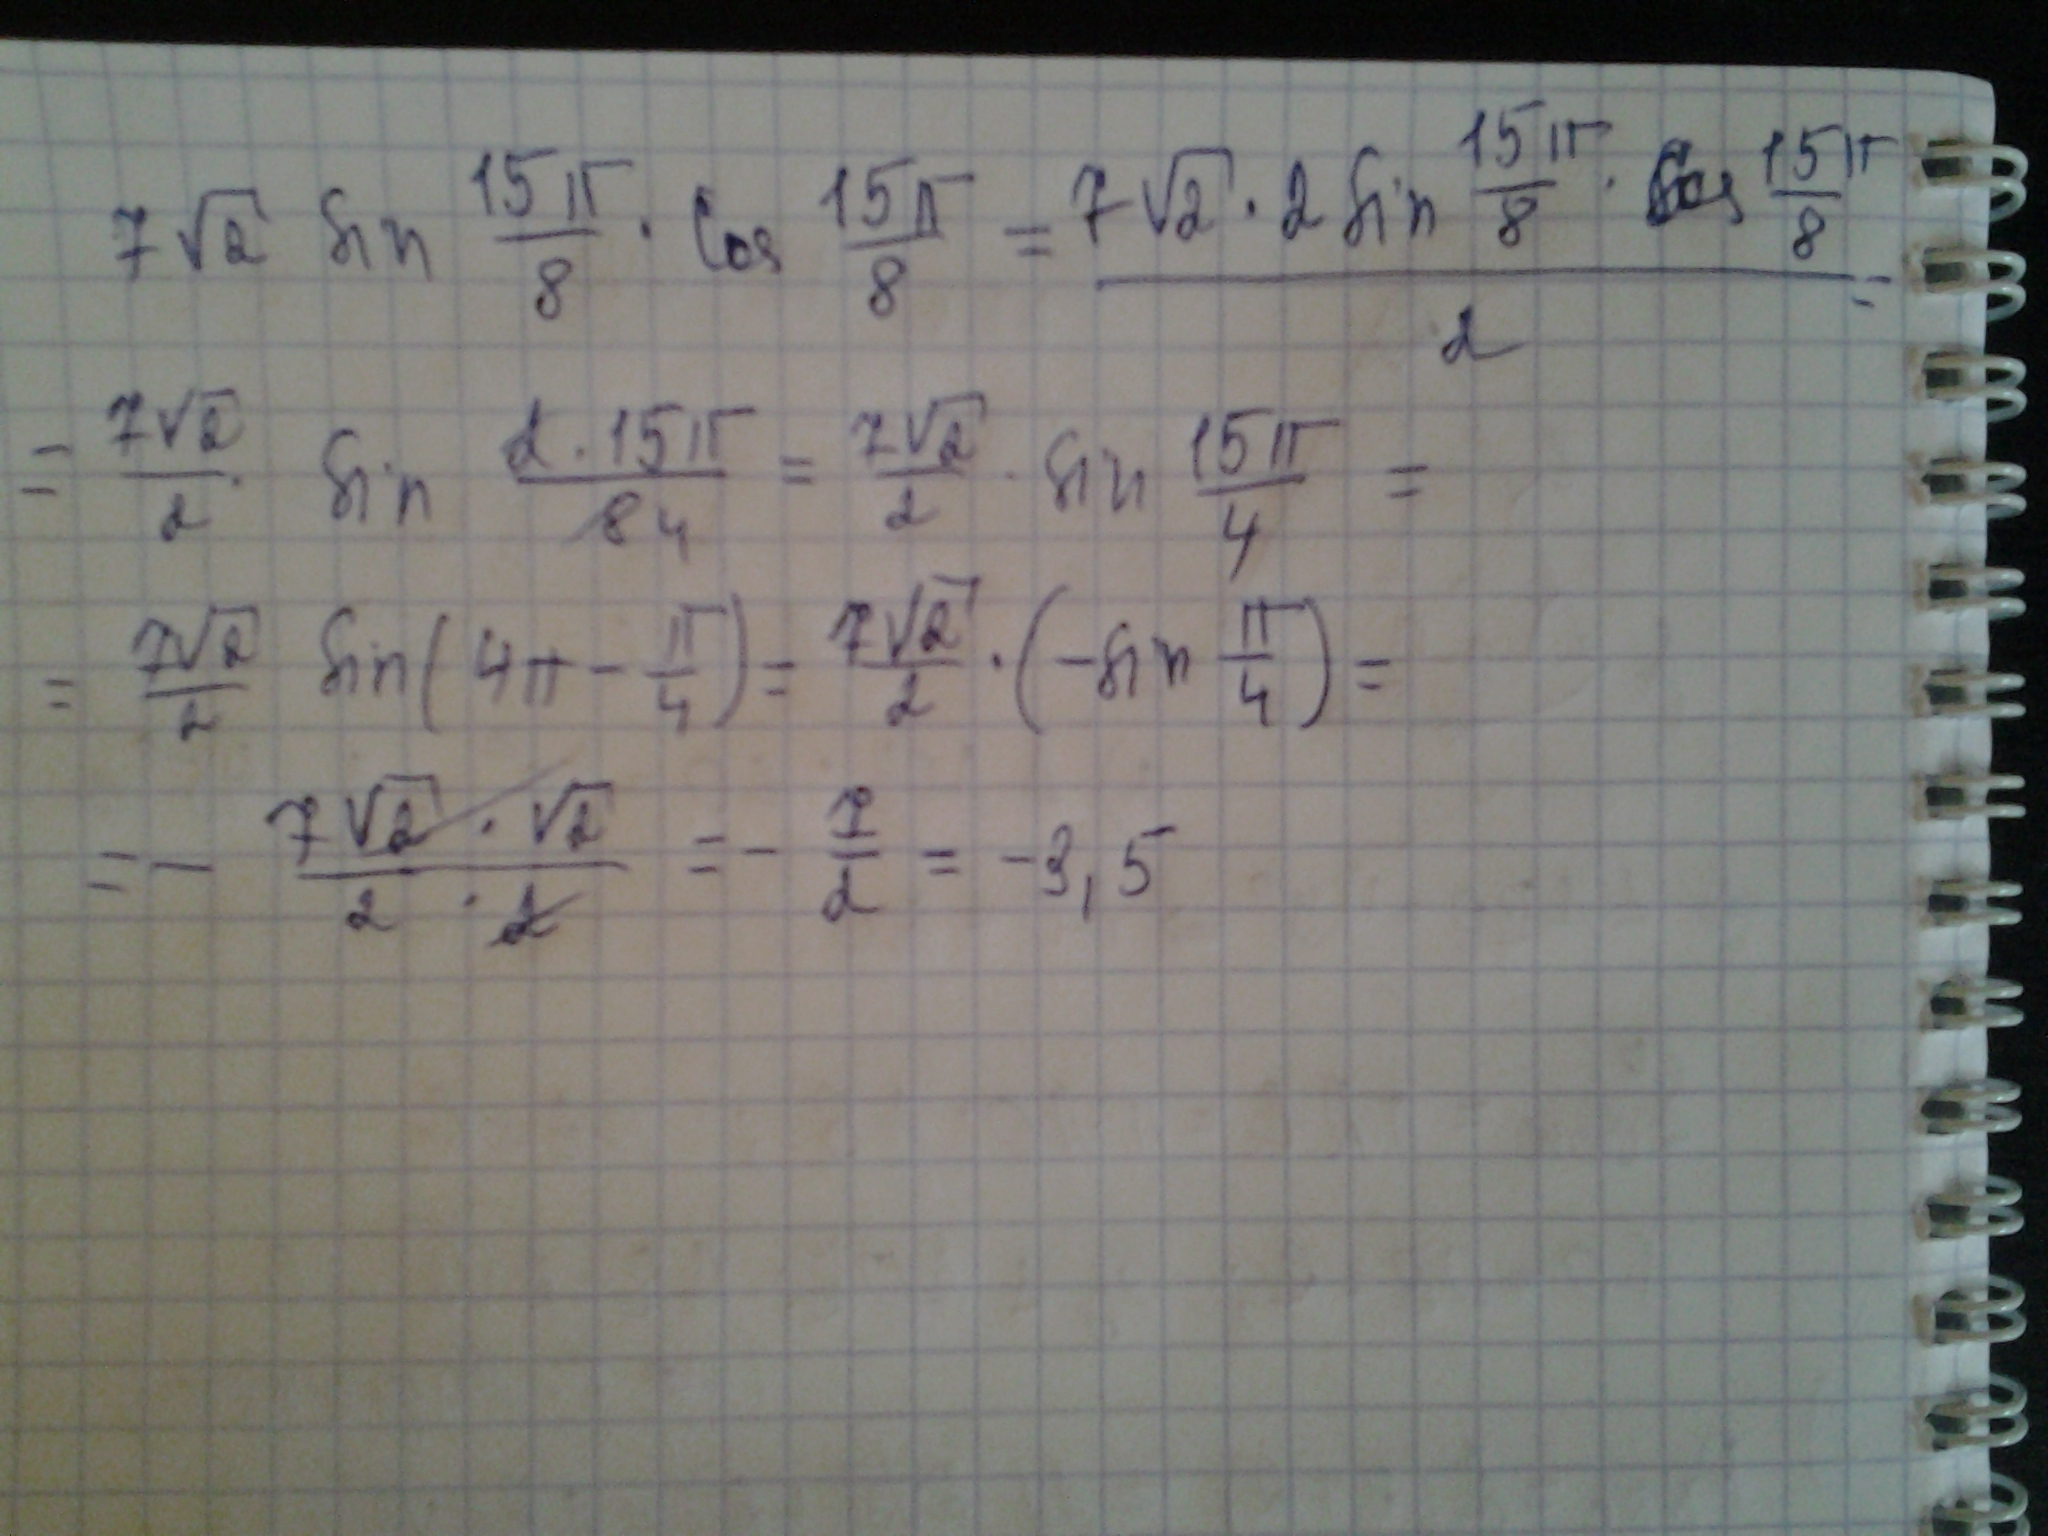 7√2 sin 15π/8 · cos 15π/8 = 7√2 · 2 sin 15π/8 · cos 15π/8 / 2 =
= 7√2/2 · sin 2·15π/8 4 = 7√2/2 · sin 15π/4 =
= 7√2/2 sin(4π - π/4) = 7√2/2 · (-sin π/4) =
= - 7√2 · √2 / 2 · 2 = - 7/2 = -3,5